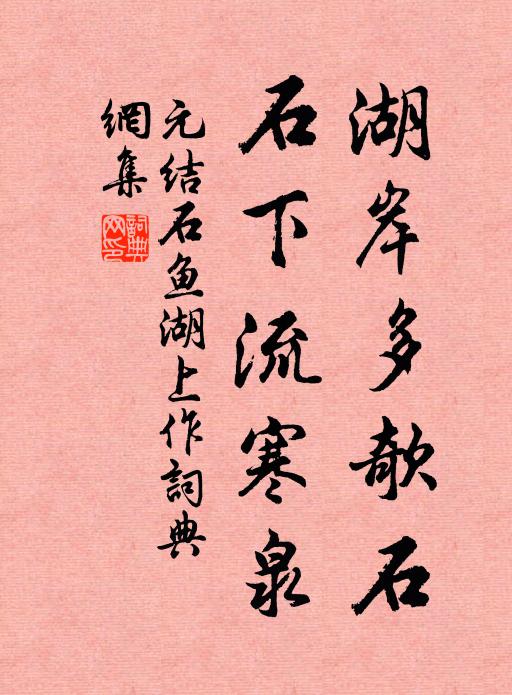 湖岸多欹石
石下流寒泉
元结石鱼湖上作詞典
網集
詞典
网印